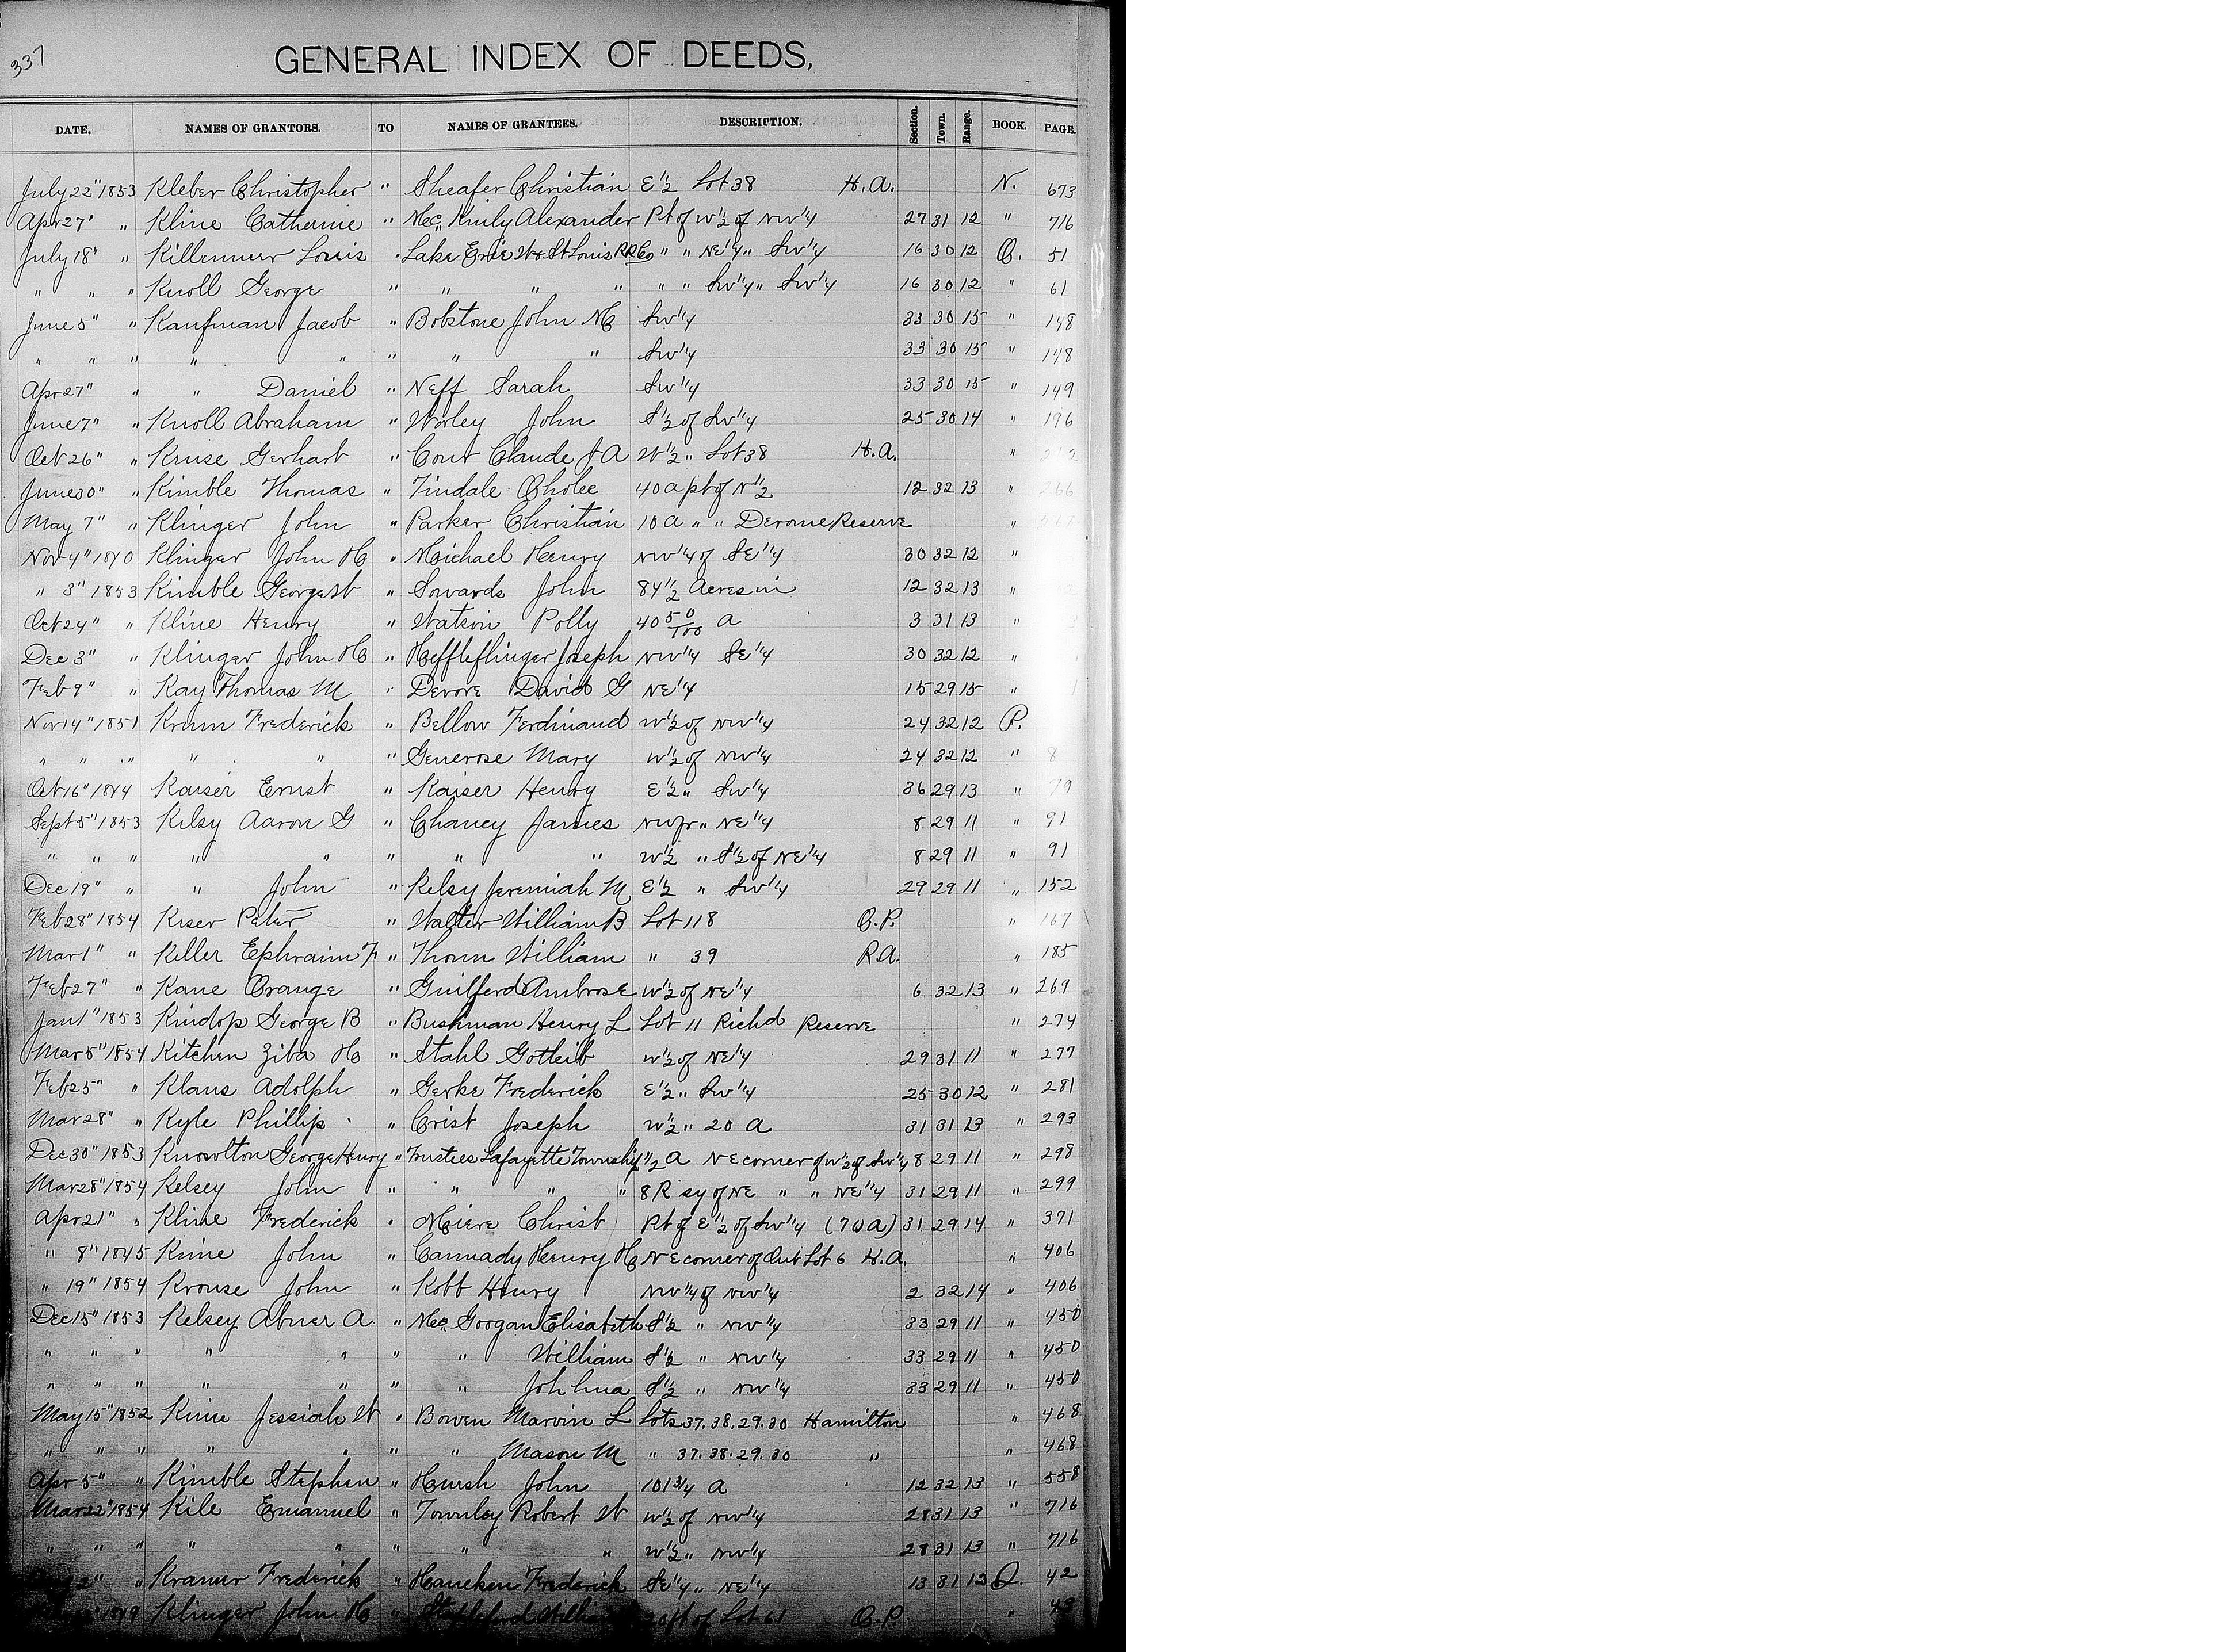 337
GENERAL INDEX OF DEEDS.
DATE. NAMES OF GRANTORS. TO NAMES OF GRANTEES. DESCRIPTION. Section. Town. Range. BOOK. PAGE.
July 22" 1853 Kleber Christopher " Sheafer Christian E 1/2 Lot 38 H.A. N. 673
Apr 27" " Kline Catherine " Mc Kinly Alexander Pt of W 1/2 of NW 1/4 27 31 12 " 716
July 18" " Louis " Lake Erie W & St Louis RR Co " " NE 1/4 " SW 1/4 16 30 12 O. 51
" " " Knoll George " " " " " " SW 1/4 " SW 1/4 16 30 12 " 61
June 5" " Kaufman Jacob " Bobstone John M SW 1/4 33 30 15 " 148
" " " " " " " " SW 1/4 33 30 15 " 148
Apr 27" " " Daniel " Neff Sarah SW 1/4 33 30 15 " 149
June 7" " Knoll Abraham " Worley John S 1/2 of SW 1/4 25 30 14 " 196
Oct 26" " Kruse Gerhart " Cour Claude J A W 1/2 " Lot 38 H.A. "
June 30" " Kimble Thomas " Tindale 40 a pt of N 1/2 12 32 13 " 266
May 7" " Klinger John " Parker Christian 10 a " " Derome Reserve "
Nov 4" 1840 Klinger John H " Michael Henry NW 1/4 of SE 1/4 30 32 12 "
" 3" 1853 Kimble George W " Sowards John 84 1/2 Acres in 12 32 13 "
Oct 24" " Kline Henry " Watson Polly 40 50/100 a 3 31 13 "
Dec 3" " Klinger John H " Heffleflinger Joseph NW 1/4 SE 1/4 30 32 12 "
Feb 9" " Kay Thomas M " Devore David G NE 1/4 15 29 15 "
Nov 14" 1851 Krum Frederick " Bellow Ferdinand W 1/2 of NW 1/4 24 32 12 P.
" " " " " " Generose Mary W 1/2 of NW 1/4 24 32 12 " 8
Oct 16" 1844 Kaiser Ernst " Kaiser Henry E 1/2 " SW 1/4 36 29 13 " 79
Sept 5" 1853 Kelsy Aaron G " Chaney James NW fr " NE 1/4 8 29 11 " 91
" " " " " " " " W 1/2 " S 1/2 of NE 1/4 8 29 11 " 91
Dec 19" " " John " Kelsy Jeremiah M E 1/2 " SW 1/4 29 29 11 " 152
Feb 28" 1854 Kiser Peter " Walter William B Lot 118 O.P. " 167
Mar 1" " Keller Ephraim F " Thorn William " 39 R.A. " 185
Feb 27" " Kane Orange " Guilferd Ambrose W 1/2 of NE 1/4 6 32 13 " 269
Jan 1" 1853 Kindop George B " Bushman Henry L Lot 11 Richd Reserve " 274
Mar 5" 1854 Kitchen Ziba H " Stahl Gotleib W 1/2 of NE 1/4 29 31 11 " 277
Feb 25" " Klaus Adolph " Gerke Frederick E 1/2 " SW 1/4 25 30 12 " 281
Mar 28" " Kyle Phillip " Crist Joseph W 1/2 " 20 a 31 31 13 " 293
Dec 30" 1853 Knowlton George Henry " Trustees Lafayette Township 1/2 a NE corner of W 1/2 of SW 1/4 8 29 11 " 298
Mar 28" 1854 Kelsey John " " " " 8 R sq of NE " " NE 1/4 31 29 11 " 299
Apr 21" " Kline Frederick " Miere Christ Pt of E 1/2 of SW 1/4 (70 a) 31 29 14 " 371
" 8" 1845 Kime John " Cannady Henry H NE corner of Out Lot 6 H.A. " 406
" 19" 1854 Krouse John " Kobb Henry NW 1/4 of NW 1/4 2 32 14 " 406
Dec 15" 1853 Kelsey Abner A " Mc Googan Elisabeth S 1/2 " NW 1/4 33 29 11 " 450
" " " " " " " William S 1/2 " NW 1/4 33 29 11 " 450
" " " " " " " S 1/2 " NW 1/4 33 29 11 " 450
May 15" 1852 Kime Jessiah W " Bowen Marvin L Lots 37.38.29.30 Hamilton " 468
" " " " " " " Mason M " 37.38.29.30 " " 468
Apr 5" " Kimble Stephen " Hursh John 101 3/4 a 12 32 13 " 558
Mar 22" 1854 Kile Emanuel " Townley Robert W W 1/2 of NW 1/4 28 31 13 " 716
" " " " " " " " W 1/2 " NW 1/4 28 31 13 " 716
2" " Kramer Frederick " Haneken Frederick SE 1/4 " NE 1/4 13 31 12 Q. 42
Klinger John H " pt of Lot 61 O.P. " 43